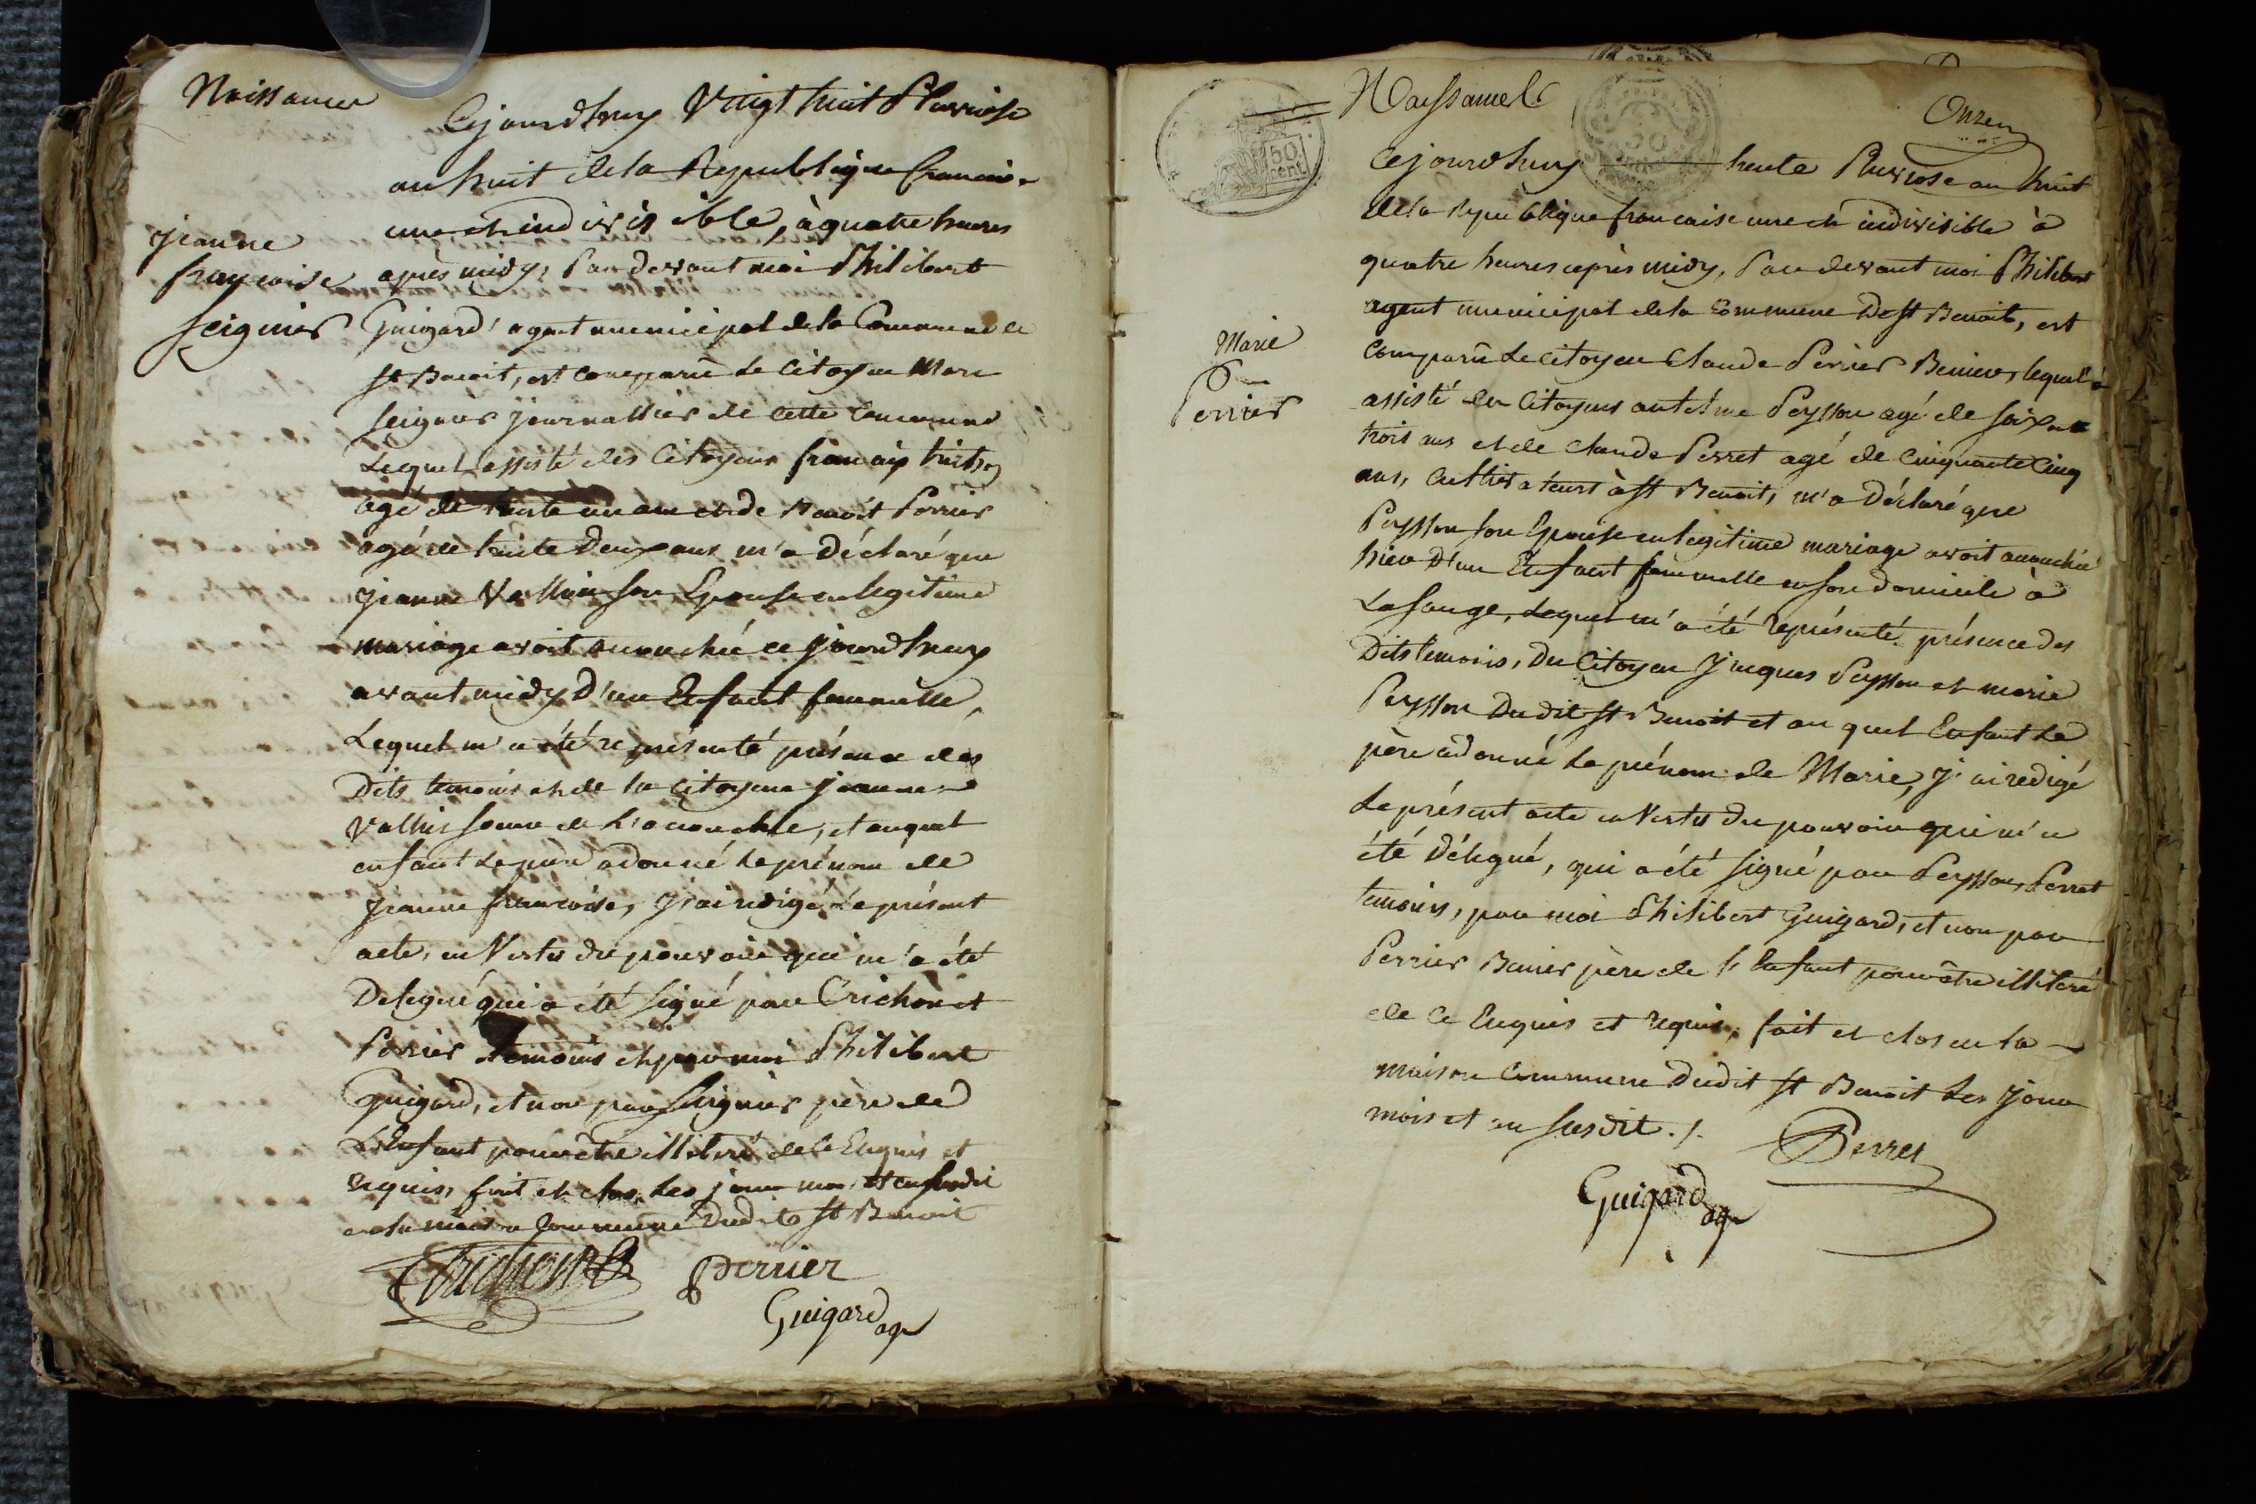 Naissance
Cejourdhuy Vingt huit Pluviose
an huit de la Republique francaise
une et indivisible, à quatre heures
jeanne
françoise
seignier
après midy, Par devant moi Philibert
Guigard agent municipal de la Commune de
st Benoit, est comparu le Citoyen Marc
seignier journallier de cette Commune
Lequel assisté des Citoyens françois
agé de trente un ans et de Benoit Perrier
agé de trente Deux ans m'a Déclaré que
jeanne Vallin son Epouse en legitime
mariage avoit accouchée ce jourdhuy
avant midy D'un Enfant femmelle,
Lequel m'a été représenté présence des
Dits temoins et de la Citoyene jeanne
Vallin soeur de L'acouchée, et auquel
enfant Le père a donné le prénom de
jeanne francoise, j'ai redigé Le présent
acte, en Vertu du pouvoir qui m'a été
Delegué qui a été signé par Crichon et
Perrier temoins et par moi Philibert
Guigard, et non par Seignier père de
L'Enfant pour être illiteré de ce Enquis et
requis, fait et clos Les jour mois et an susdit
en la maison Commune Dudit st Benoit
Crichon Perrier
Guigard agt
50
cent
Naissance
30
Onzen
Cejourdhuy trente Pluviose an huit
de la République francaise une et indivisible à
quatre heures après midy, Par devant moi Philibert
agent municipal de la Commune De st Benoit, est
Marie
Perrier
Comparu Le Citoyen Claude Perrier Benier, lequel
assisté des Citoyens antelme Peysson agé de soixante
trois ans et de Claude Perret agé de Cinquante Cinq
ans, Cultivateurs à st Benoit, m'a Déclaré que
Peysson son Epouse en legitime mariage avoit accouchée
hier D'un Enfant femmelle en son domicile à
Lasauge, Lequel m'a été représenté présence des
Dits temoins, Du Citoyen Jacques Peysson et marie
Peysson Dudit st Benoit et au quel Enfant Le
père a donné Le prénom de Marie, j'ai redigé
Le présent acte en Vertu du pouvoir qui m'a
été Délegué, qui a été signé par Peysson, Perret
temoins, par moi Philibert Guigard, et non par
Perrier Benier père de L'Enfant pour être illiteré
de ce Enquis et requis, fait et clos en la
maison Commune Dudit st Benoit Les jour
mois et an susdit ./.
Perret
Guigard agt